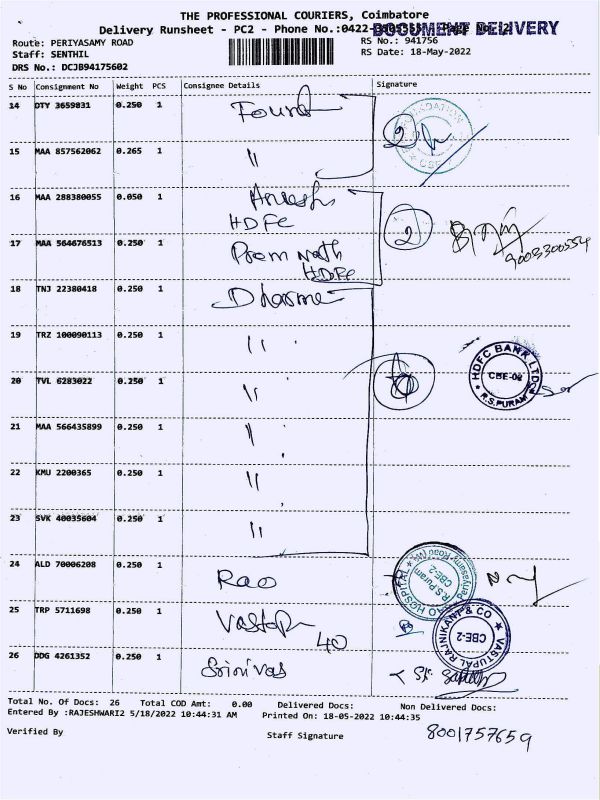 THE PROFESSIONAL COURIERS, Coimbatore
Delivery Runsheet - PC2 - Phone No.:0422-
DOCUMENT DELIVERY
Route: PERIYASAMY ROAD
RS No.: 941756
Staff: SENTHIL
RS Date: 18-May-2022
DRS No.: DCJB94175602
S No Consignment No Weight PCS Consignee Details Signature
14 DTY 3659831 0.250 1
15 MAA 857562062 0.265 1 "
16 MAA 288380055 0.050 1
HDFC
17 MAA 564676513 0.250 1 Prem nath
HDFC
18 TNJ 22380418 0.250 1 Dharme
19 TRZ 100090113 0.250 1 "
20 TVL 6283022 0.250 1 "
21 MAA 566435899 0.250 1 "
22 KMU 2200365 0.250 1 "
23 SVK 40035604 0.250 1 "
24 ALD 70006208 0.250 1 Rao
25 TRP 5711698 0.250 1
40
26 DDG 4261352 0.250 1 Srinivas
2
2
9003300554
HDFC BANK LTD.
CBE-02
R.S.PURAM
RAO HOSPITAL
Periyasamy Road (W)
R.S.Puram
CBE-2
VASTUPAL RAJNIKANT & CO
CBE-2
Total No. Of Docs: 26 Total COD Amt: 0.00 Delivered Docs: Non Delivered Docs:
Entered By :RAJESHWARI2 5/18/2022 10:44:31 AM Printed On: 18-05-2022 10:44:35
Verified By Staff Signature
8001757659